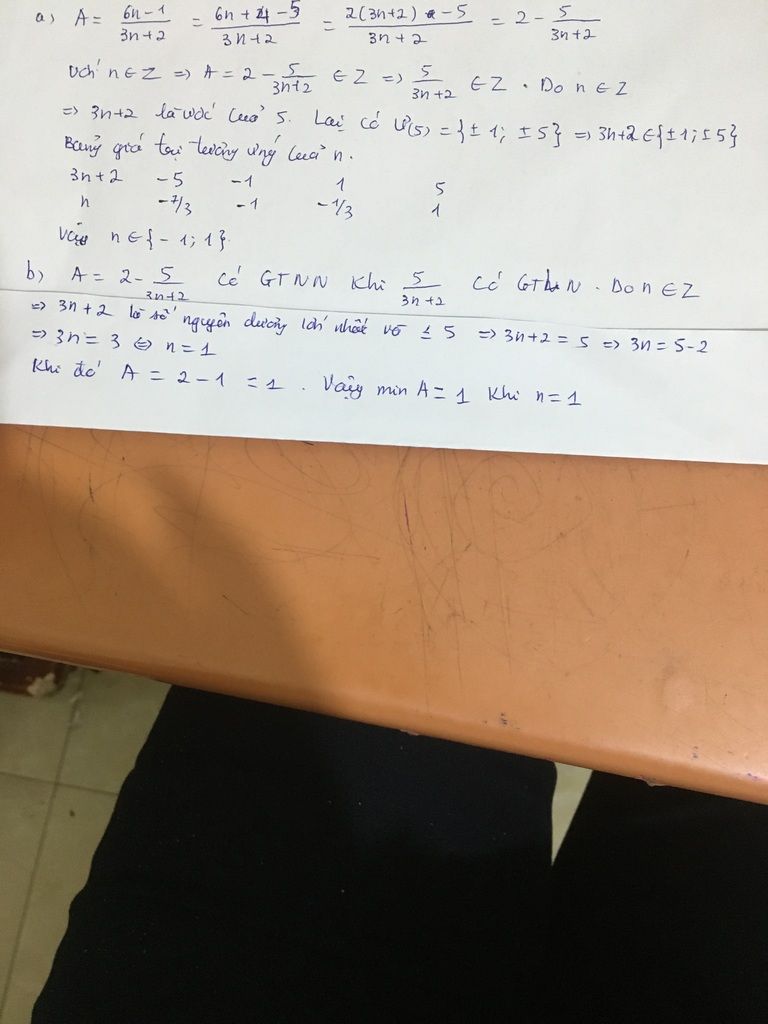 a) A = \frac{6n-1}{3n+2} = \frac{6n+4-5}{3n+2} = \frac{2(3n+2)-5}{3n+2} = 2 - \frac{5}{3n+2}
Với n ∈ Z => A = 2 - \frac{5}{3n+2} ∈ Z => \frac{5}{3n+2} ∈ Z . Do n ∈ Z
=> 3n+2 là ước của 5. Lại có Ư(5) = {± 1; ± 5} => 3n+2 ∈ {± 1; ± 5}
Bảng giá trị tương ứng của n.
3n+2 -5 -1 1 5
n -7/3 -1 -1/3 1
Vậy n ∈ {-1; 1}
b) A = 2 - \frac{5}{3n+2} Có GTNN Khi \frac{5}{3n+2} Có GTLN . Do n ∈ Z
=> 3n+2 là số nguyên dương lớn nhất và ≤ 5 => 3n+2 = 5 => 3n = 5-2
=> 3n = 3 <=> n = 1
Khi đó A = 2 - 1 = 1 . Vậy min A = 1 Khi n = 1